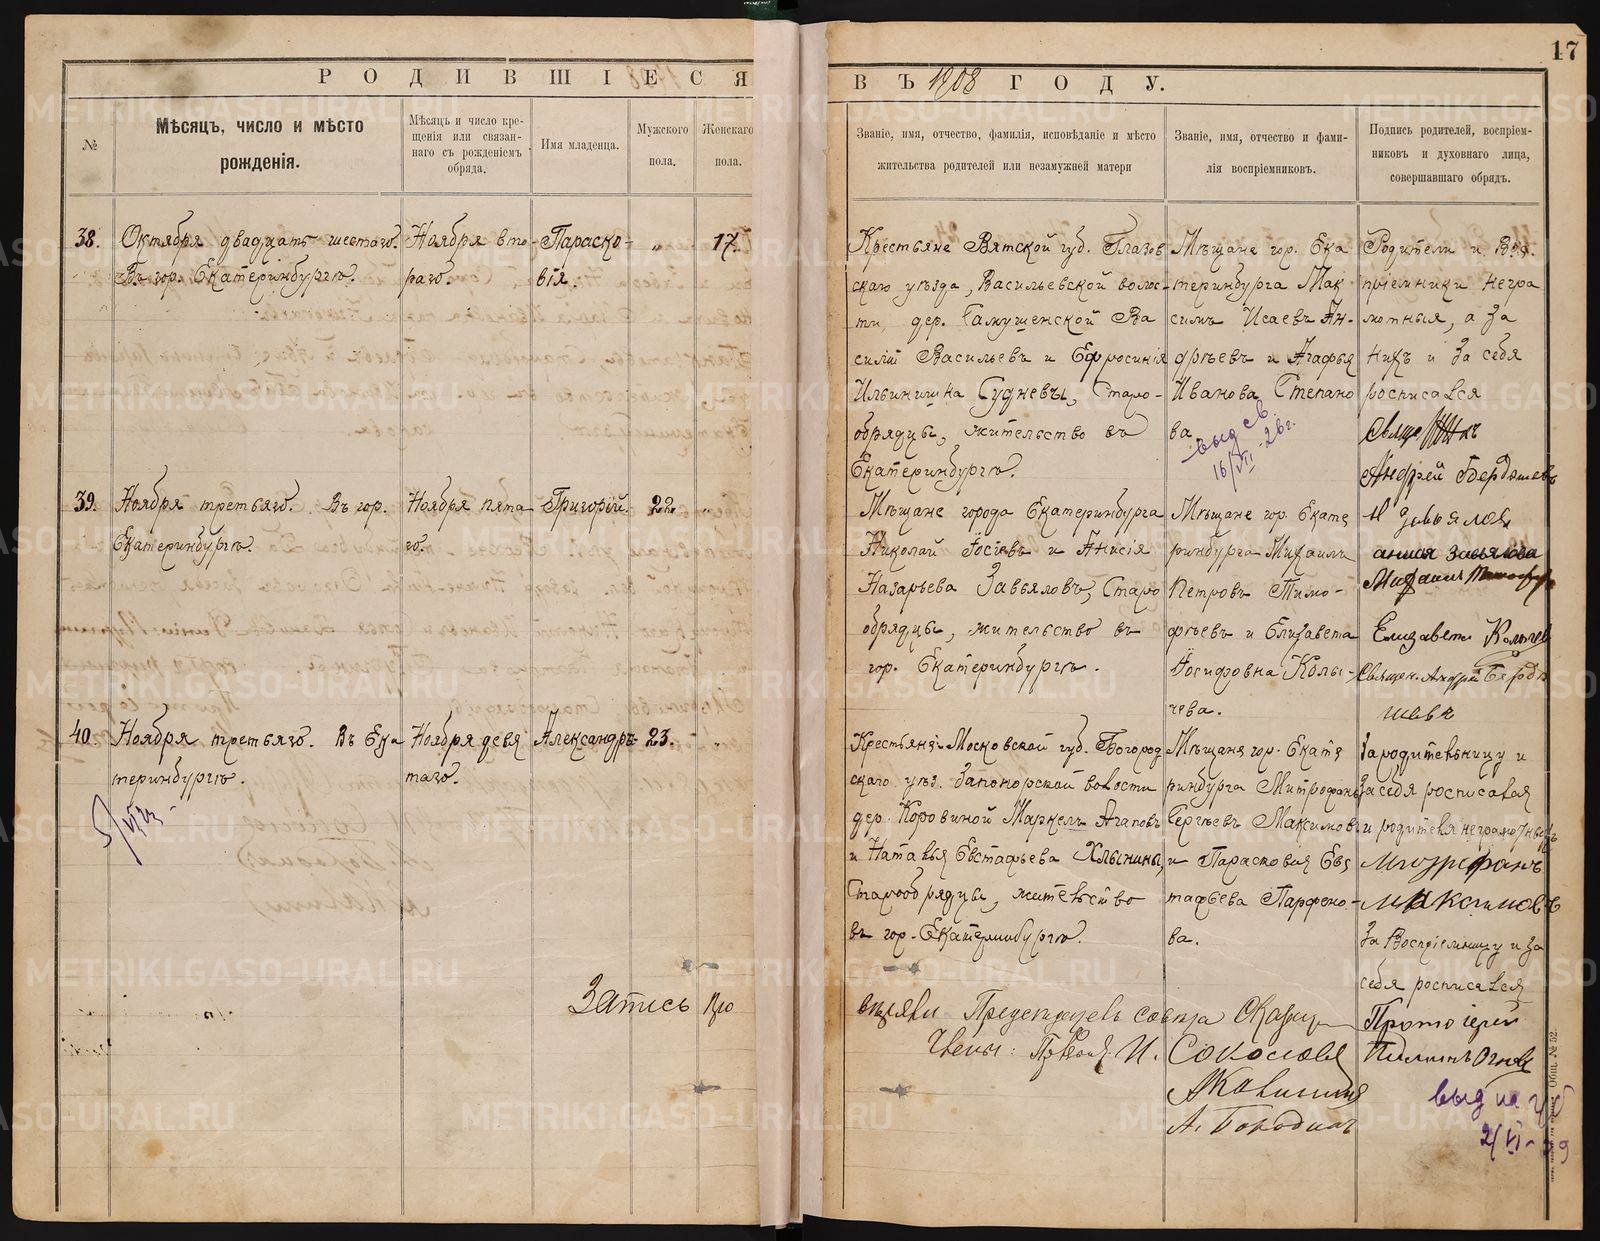 17
РОДИВШІЕСЯ
ВЪ 1908 ГОДУ.
№
Мѣсяцъ, число и мѣсто
рожденія.
Мѣсяцъ и число кре-
щенія или связан-
наго съ рожденіемъ
обряда.
Имя младенца.
Мужского
пола.
Женскаго
пола.
Званіе, имя, отчество, фамилія, исповѣданіе и мѣсто
жительства родителей или незамужней матери
Званіе, имя, отчество и фами-
лія воспріемниковъ.
Подпись родителей, воспріем-
никовъ и духовнаго лица,
совершавшаго обрядъ.
38.
Октября двадцать шестаго.
Въ гор. Екатеринбургѣ.
Ноября вто-
раго.
Параско-
вія.
"
17.
Крестьяне Вятской губ. Глазов
скаго уѣзда, Васильевской волос-
ти, дер. Гамушенской Ва
силій Васильевъ и Ефросинія
Ильинишна Судневы, Старо-
обрядцы, жительство въ
Екатеринбургѣ.
Мѣщане гор. Ека
теринбурга Мак
симъ Исаевъ Ан-
дрѣевъ и Агафья
Иванова Степано
ва
выд св.
16/VII-26г.
Родители и Вос.
пріемники негра
мотныя, а за
нихъ и за себя
росписался
Андрей Бердышевъ
39.
Ноября третьяго. Въ гор.
Екатеринбургѣ.
Ноября пята
го.
Григорій.
22
"
Мѣщане города Екатеринбурга
Николай Іосіевъ и Анисія
Назарьева Завьяловы, Старо
обрядцы, жительство въ
гор. Екатеринбургѣ.
Мѣщане гор. Екате
ринбурга Михаилъ
Петровъ Тимо-
фѣевъ и Елизавета
Іосифовна Колы-
чева.
Н Завьялов
Завьялова
Михаилъ
Елизавета
Священ. Андрей Берды
шевъ
40.
Ноября третьяго. Въ Ека
теринбургѣ.
Ноября девя
таго.
Александръ
23.
"
Крестьяне Московской губ. Богород
скаго уѣз. Запонорской волости
дер. Коровиной Маркелъ Агаповъ
и Наталья Евстафьева Хлынины,
Старообрядцы, жительство
въ гор. Екатеринбургѣ.
Мѣщане гор. Екате
ринбурга Митрофанъ
Сергѣевъ Максимовъ
и Парасковия Евс
тафьева Парфено-
ва.
За родительницу и
За себя росписался
и родителя неграмотныхъ
Митрофанъ
Максимовъ
За Воспріемницу и за
себя росписался
Протоіерей
Запись про
вѣряли Председатель совѣта
Члены: И. Соколовъ
А Калинин
А. Бородинъ
выд на
2/VI-29
Общ. № 52.